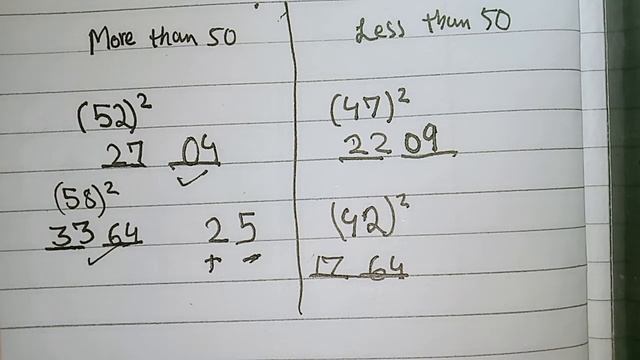 More than 50
(52)²
27 04
(58)²
33 64
25
+ -
Less than 50
(47)²
22 09
(42)²
17 64